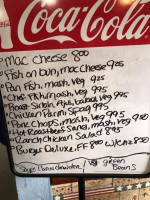 Coca-Cola
Mac Cheese 800
Fish on Bun, mac cheese 925
Pan Fish, mash, veg 995
Chef Fish, mash, veg 995
Roast Sirloin, veg 995
Chicken Parm Spag 995
Pork Chops, mash, veg 995
Hot Roast Beef Sand, mash, veg 950
Ranch Chicken Salad 895
Burger Deluxe, FF 895 w/che 850
Soup: chowder / Veg green
Beans